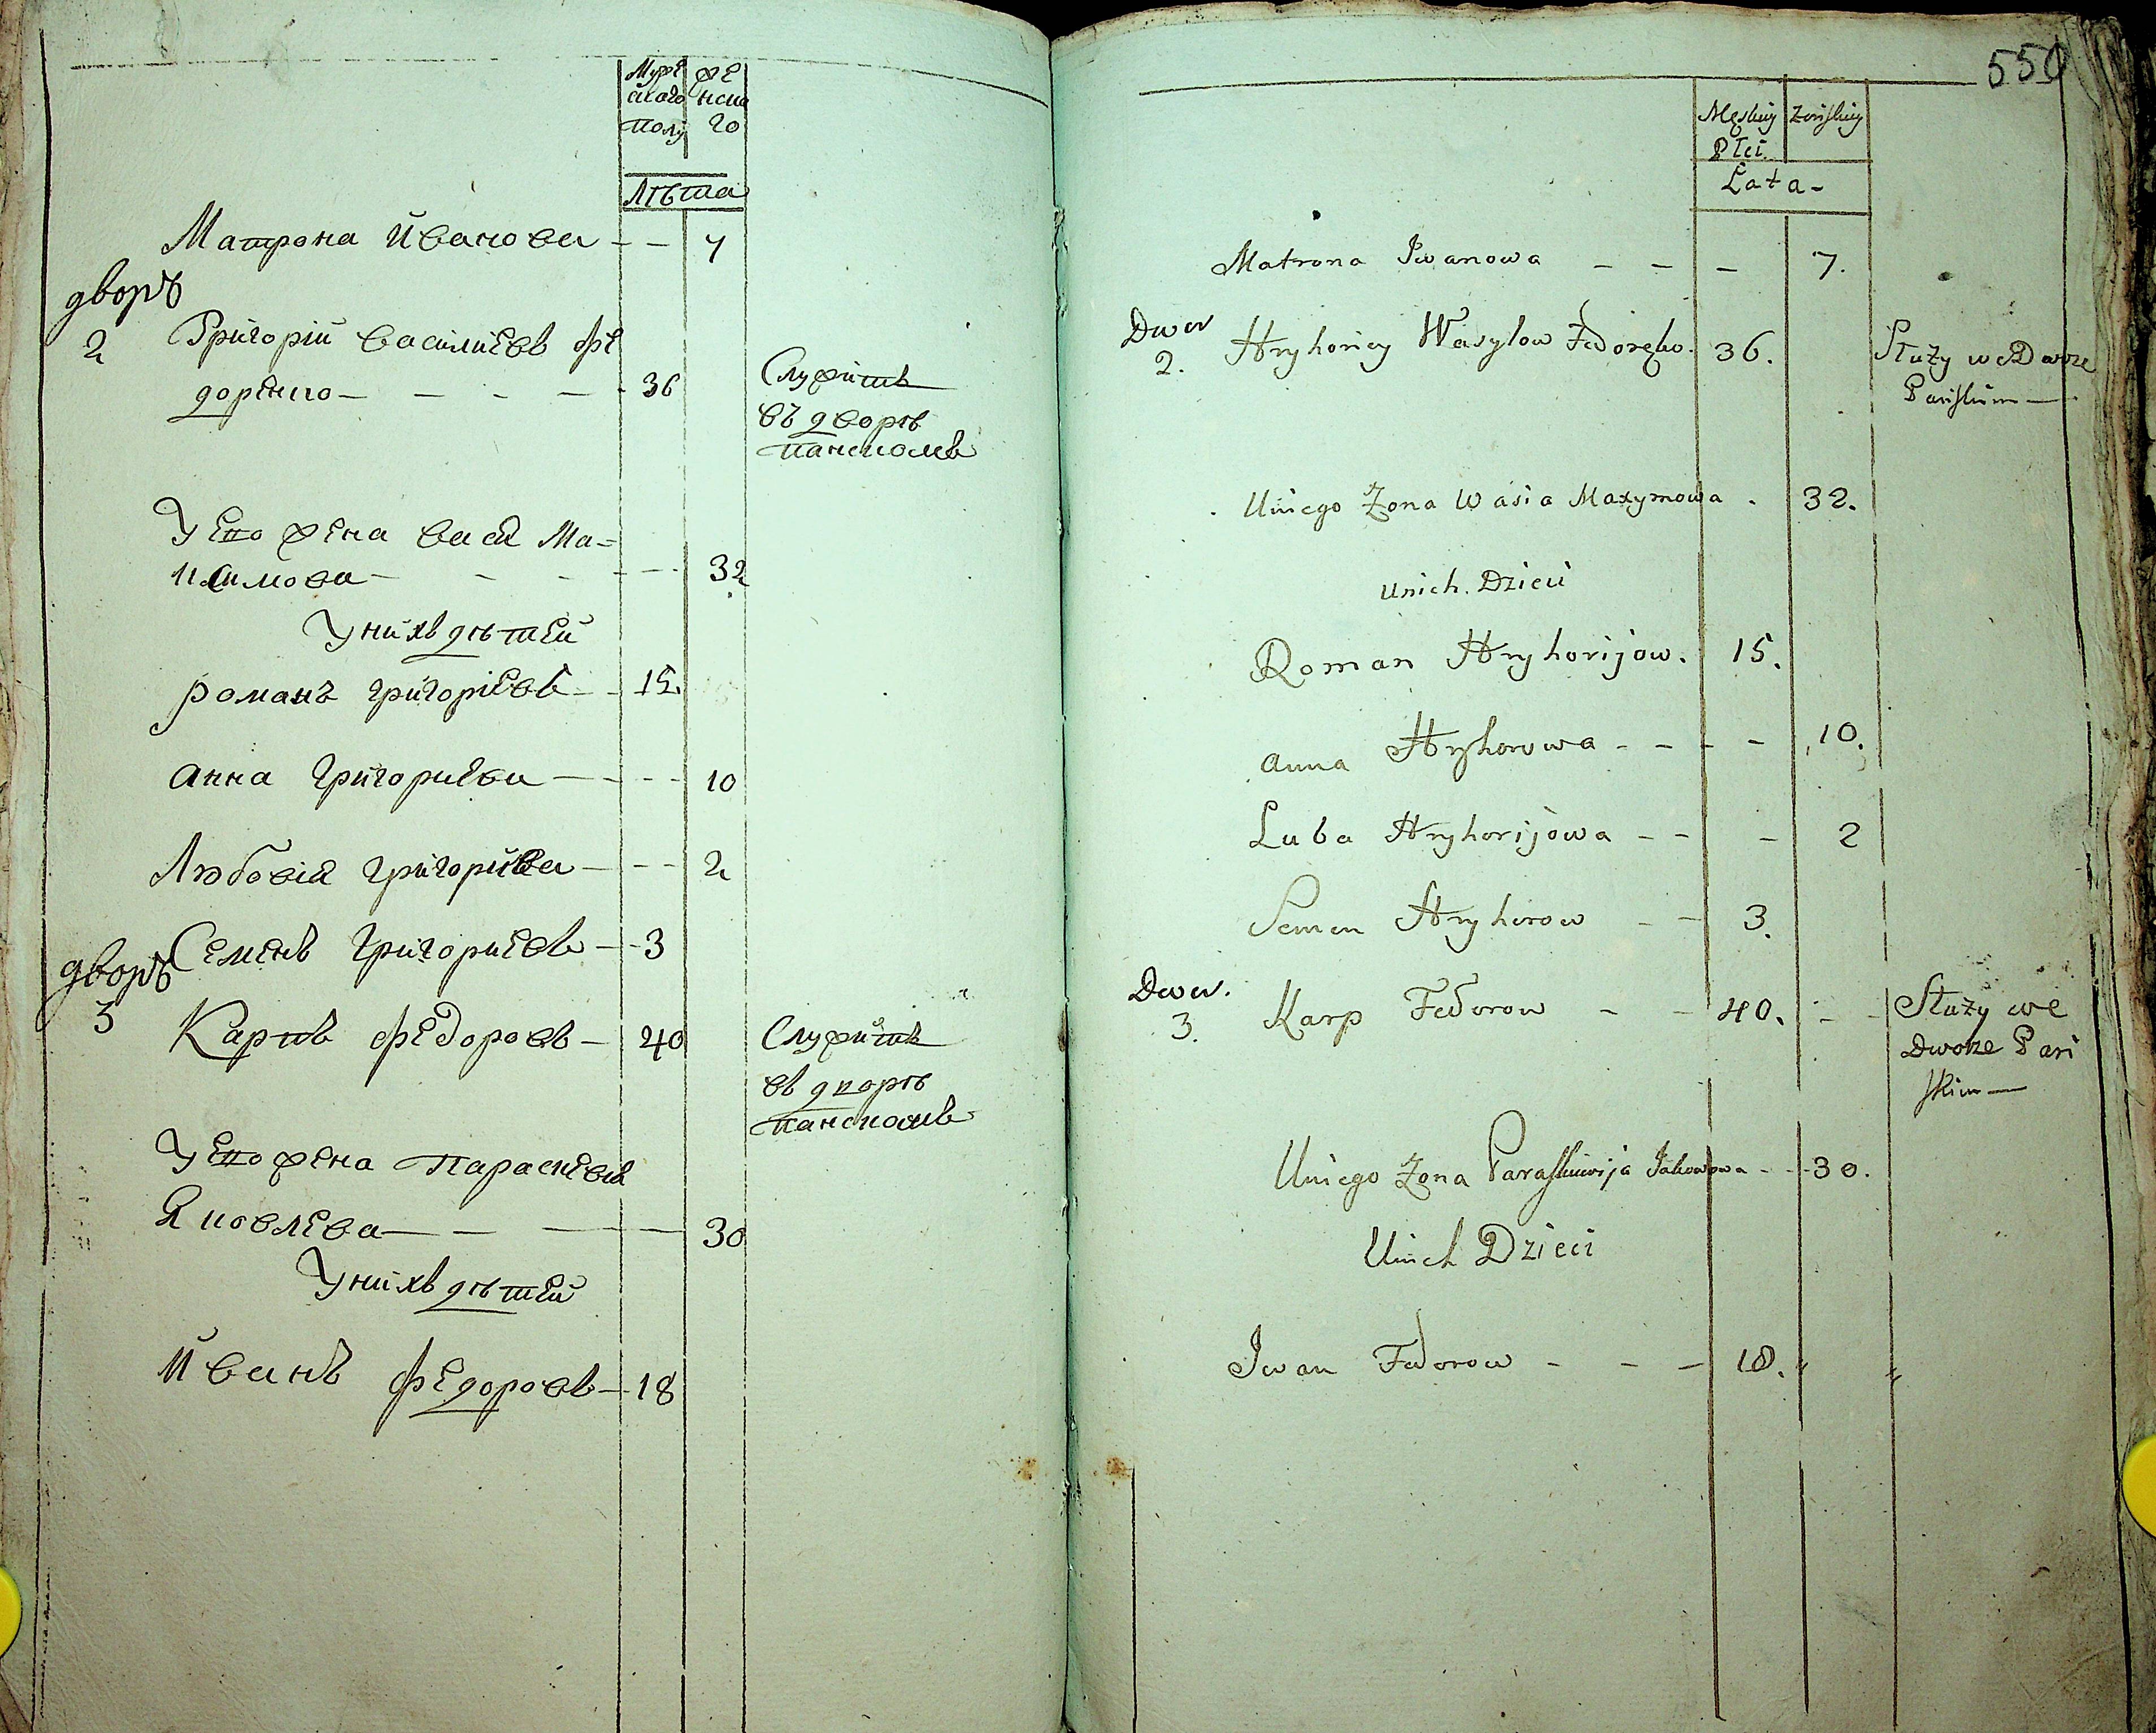 Муже же
скаго нска
полу го
Лѣта
Матрона Ивановa - - 7
дворъ
2 Григорій Василиевъ Фе
доренко - - - - 36
Служитъ
въ дворѣ
панскомъ
У его жена Вася Ма=
ксимова - - - - 32
У нихъ дѣтей
Романъ Григоріевъ - - 15.
Анна Григориева - - - 10
Любовія Григориева - - - 2
Семенъ Григориевъ - - 3
дворъ
3 Карпъ Федоровъ - 40
Служитъ
въ дворѣ
панскомъ
У его жена Параскевія
Яковлева - - - - 30
У нихъ дѣтей
Иванъ Федоровъ - 18
550
Męskiey Żeńskiey
Płci
Lata -
Matrona Iwanowa - - - 7.
Dwor
2. Hryhoriey Wasylow Fedoręko. 36. Służy we Dworze
Pańskim -
Uniego Żona Wasia Maxymowa . 32.
Unich Dzieci
Roman Hryhorijow. 15.
Anna Hryhorowa - - - - 10.
Luba Hryhorijowa - - - 2
Semen Hryhorow - - 3.
Dwor.
3. Karp Fedorow - - 40. - - Służy we
Dworze Pań
skim -
Uniego Żona Paraskiewija Jakowowa - - 30.
Unich Dzieci
Iwan Fedorow - - - 18.